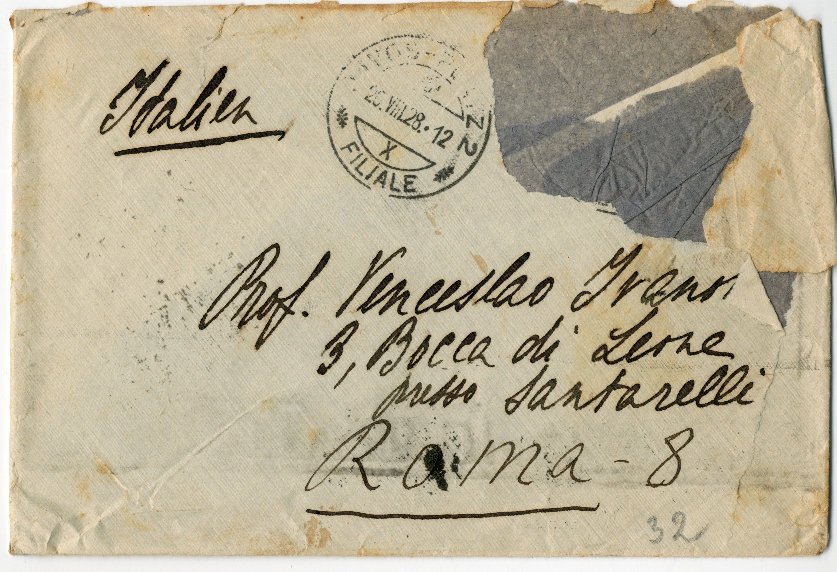 Italien
25.VIII.28.12
X
FILIALE
Prof. Venceslao Ivanov
3, Bocca di Leone
presso Santarelli
Roma - 8
32